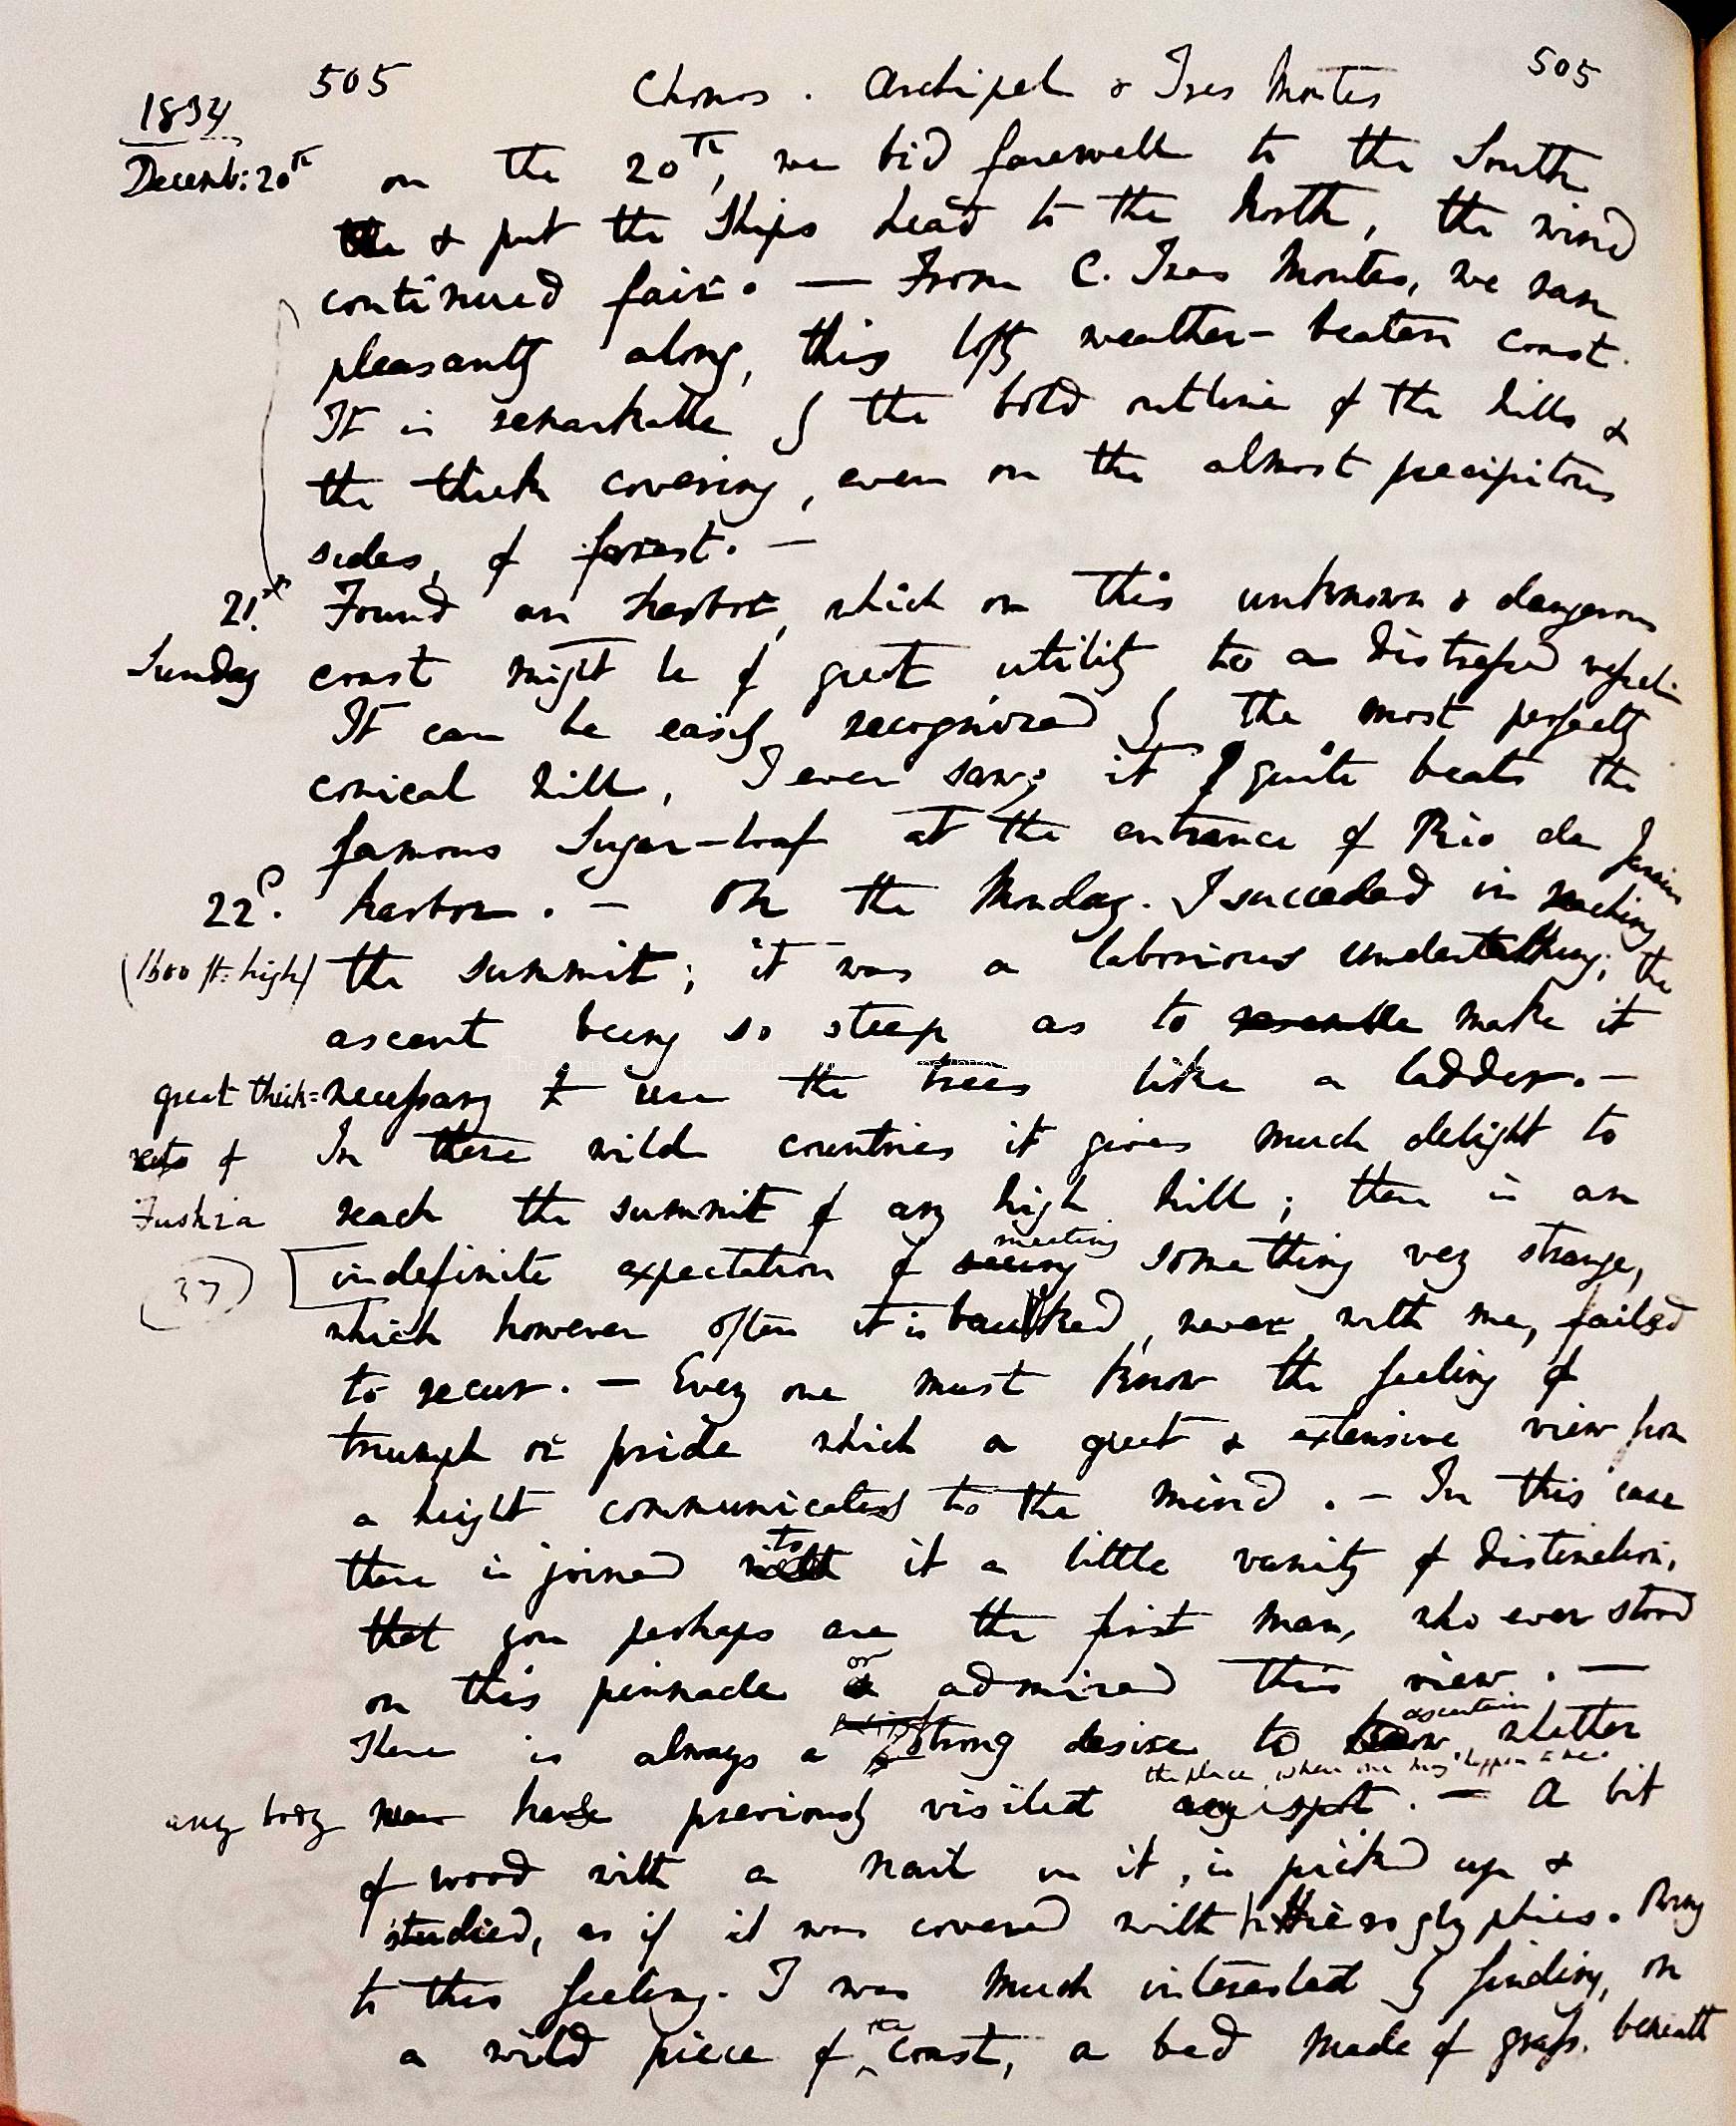 505 Chonos. Archipel & Tres Montes 505
1834
Decemb: 20th on the 20th, we bid farewell to the South
& put the Ships head to the North, the wind
continued fair. — From C. Tres Montes, we ran
pleasantly along, this lofty weather-beaten coast.
It is remarkable by the bold outline of the hills &
the thick covering, even on the almost precipitous
sides, of forest. —
21st Found an harbor, which on this unknown & dangerous
Sunday coast might be of great utility to a distressed vessel.
It can be easily recognized by the most perfectly
conical hill, I ever saw; it quite beats the
famous Sugar-loaf at the entrance of Rio de Janeiro
22d. harbor. — On the Monday. I succeeded in reaching
(1600 ft: high) the summit; it was a laborious undertaking; the
ascent being so steep as to resemble make it
great thick= necessary to use the trees like a ladder. —
ets of In these wild countries it gives much delight to
Fushzia reach the summit of any high hill; there is an
meeting
(37) indefinite expectation of seeing something very strange,
which however often it is baulked, never, with me, failed
to recur. — Every one must know the feeling of
triumph or pride which a great & extensive view from
a height communicates to the mind. — In this case
to
there is joined with it a little vanity of distinction,
that you perhaps are the first man, who ever stood
or
on this pinnacle & admired this view. —
ascertain
There is always a strong desire to know whether
the place, where one may happen to be.
any body has previously visited any spot. — A bit
of wood with a nail in it, is picked up &
studied, as if it was covered with hieroglyphics. Owing
to this feeling. I was much interested by finding, on
the
a wild piece of coast, a bed made of grass. beneath